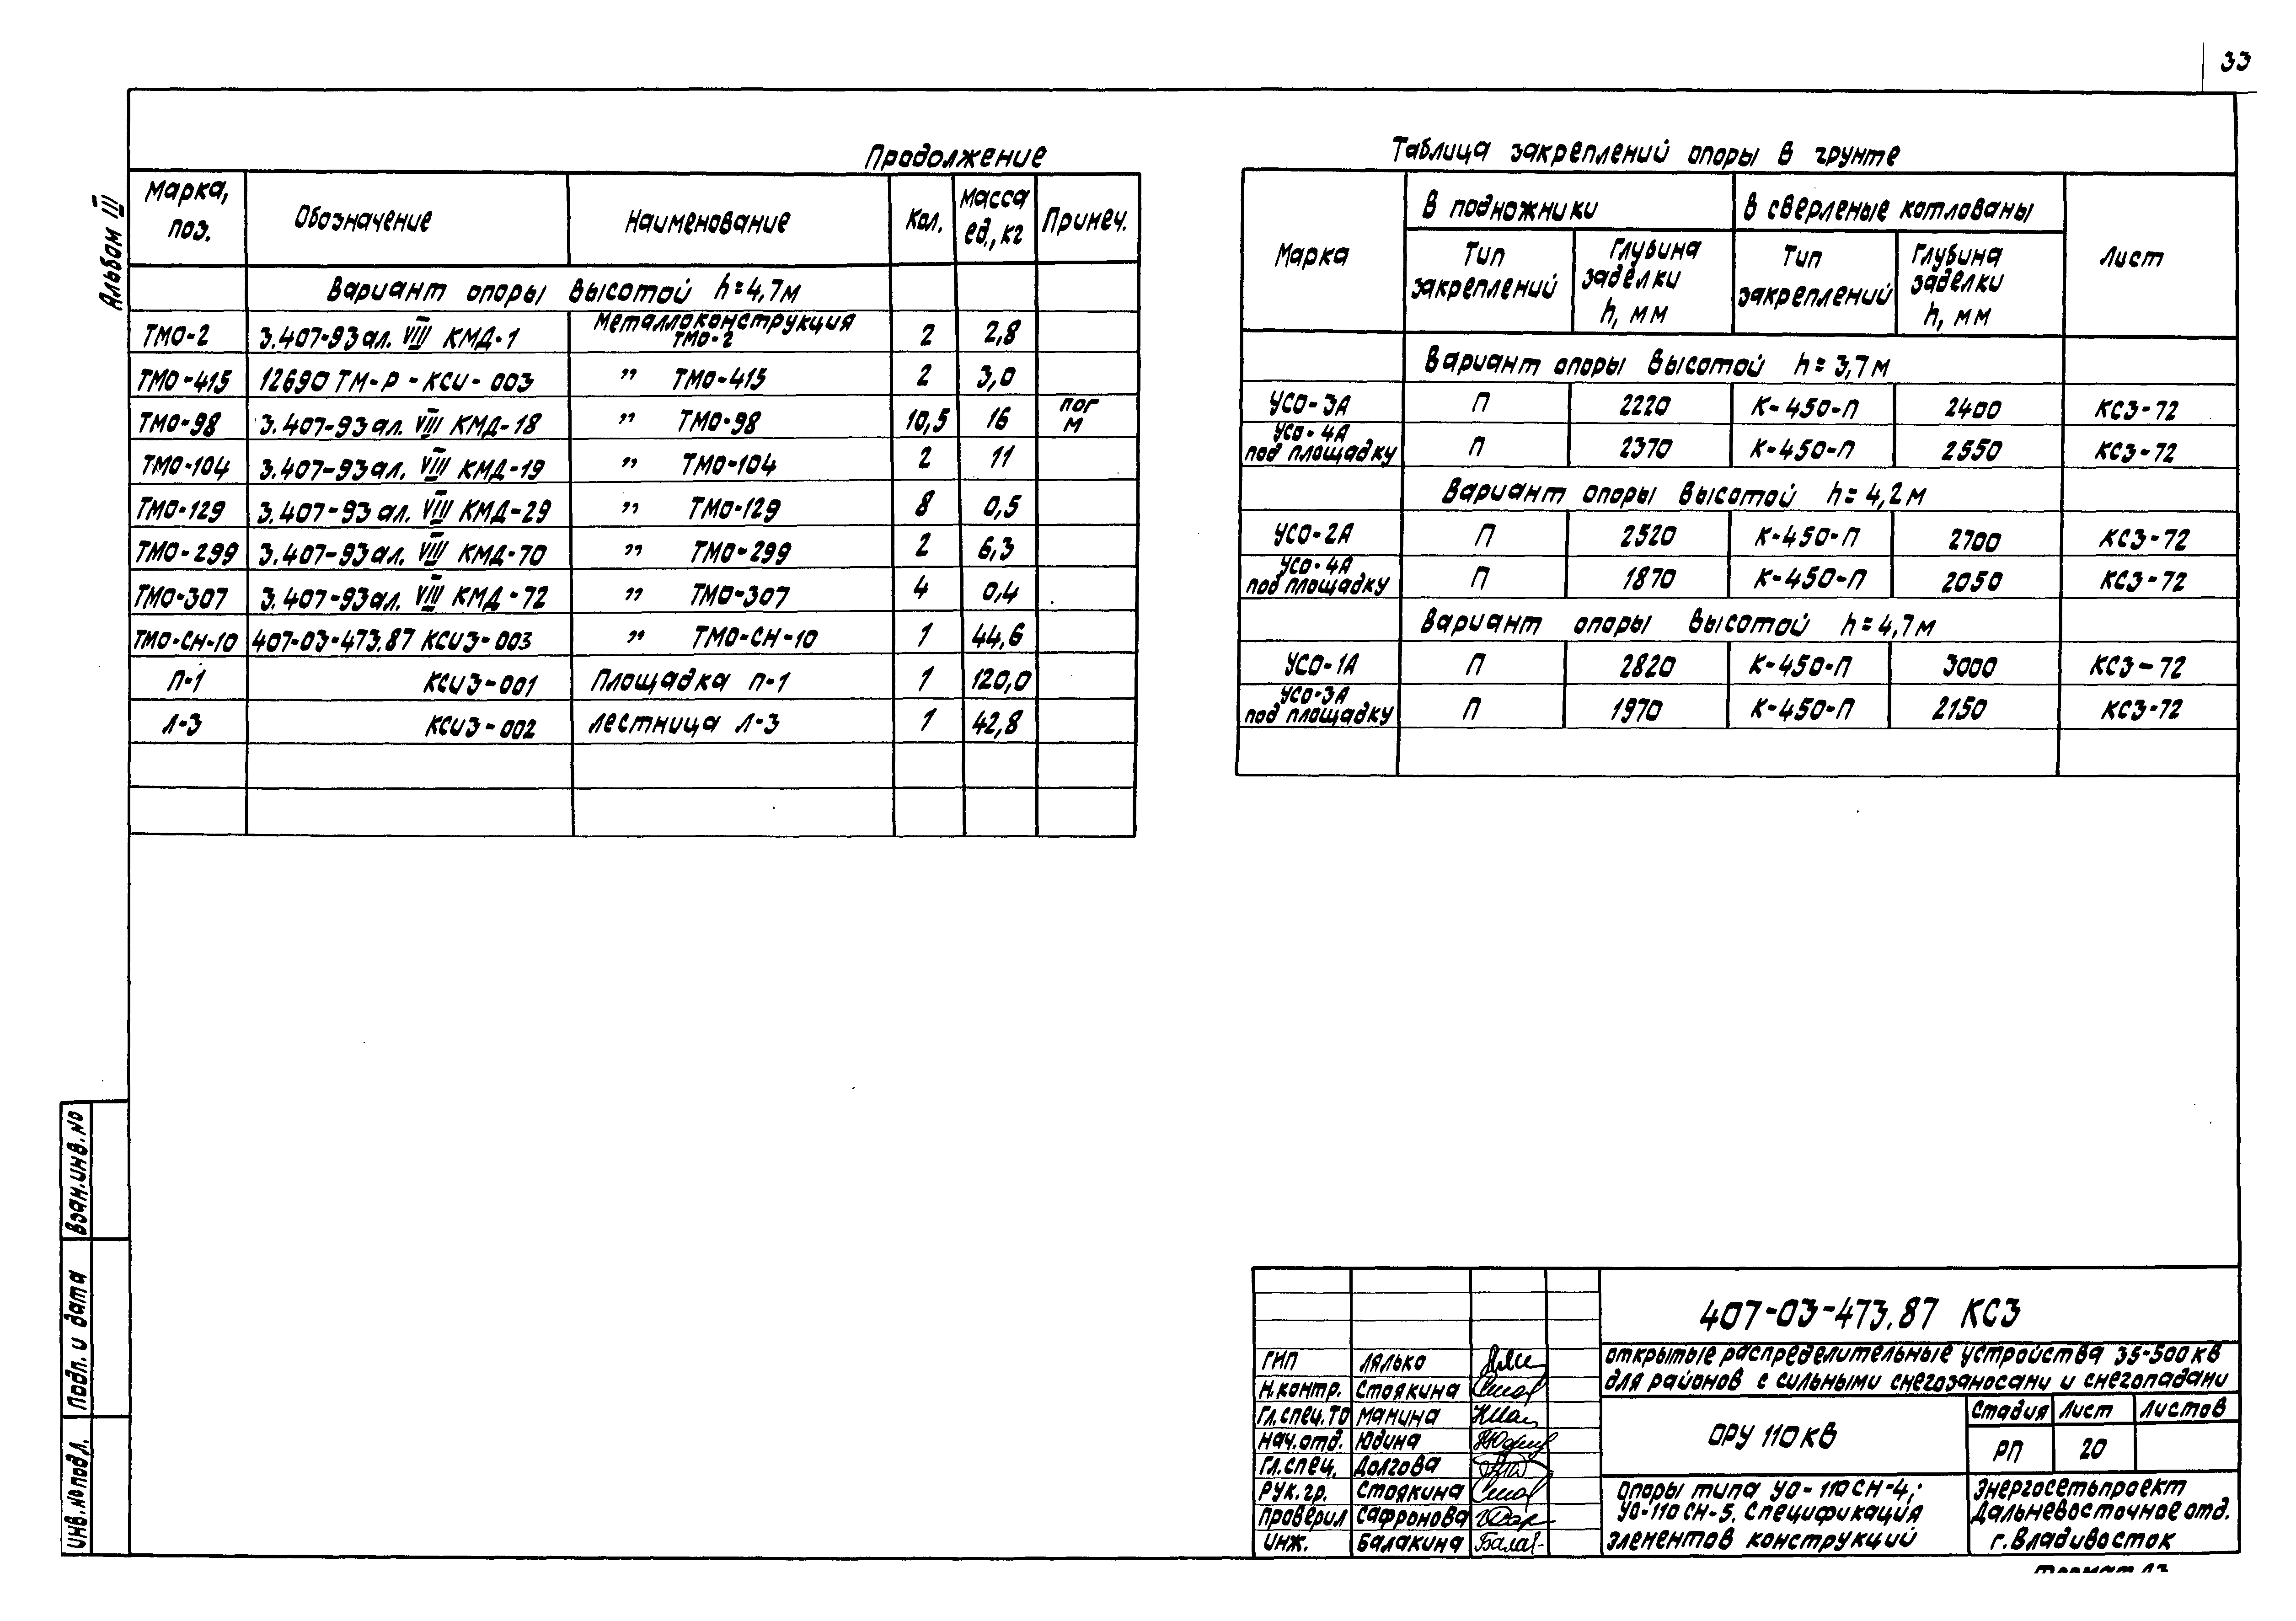 33
Альбом III
Продолжение
Марка, поз. Обозначение Наименование Кол. Масса ед., кг Примеч.
Вариант опоры высотой h=4,7м
ТМО-2 3.407-93 ал. VIII КМД-1 Металлоконструкция ТМО-2 2 2,8
ТМО-415 12690 ТМ-Р-КСИ-003 " ТМО-415 2 3,0
ТМО-98 3.407-93 ал. VIII КМД-18 " ТМО-98 10,5 16 пог м
ТМО-104 3.407-93 ал. VIII КМД-19 " ТМО-104 2 11
ТМО-129 3.407-93 ал. VIII КМД-29 " ТМО-129 8 0,5
ТМО-299 3.407-93 ал. VIII КМД-70 " ТМО-299 2 6,3
ТМО-307 3.407-93 ал. VIII КМД-72 " ТМО-307 4 0,4
ТМО-СН-10 407-03-473.87 КСИЗ-003 " ТМО-СН-10 1 44,6
П-1 КСИЗ-001 Площадка П-1 1 120,0
Л-3 КСИЗ-002 Лестница Л-3 1 42,8
Таблица закреплений опоры в грунте
Марка В подножники В сверленые котлованы Лист
Тип закреплений Глубина заделки h, мм Тип закреплений Глубина заделки h, мм
Вариант опоры высотой h=3,7м
УСО-3А П 2220 К-450-П 2400 КС3-72
УСО-4А под площадку П 2370 К-450-П 2550 КС3-72
Вариант опоры высотой h=4,2м
УСО-2А П 2520 К-450-П 2700 КС3-72
УСО-4А под площадку П 1870 К-450-П 2050 КС3-72
Вариант опоры высотой h=4,7м
УСО-1А П 2820 К-450-П 3000 КС3-72
УСО-3А под площадку П 1970 К-450-П 2150 КС3-72
Взам.инв.№
Подп. и дата
Инв.№подл.
407-03-473.87 КС3
Открытые распределительные устройства 35-500кВ
для районов с сильными снегозаносами и снегопадами
ГИП Лялько
Н.контр. Стоякина
Гл.спец.ТО Манина
Нач.отд. Юдина
Гл.спец. Долгова
Рук.гр. Стоякина
Проверил Сафронова
Инж. Балакина
ОРУ 110кВ
Стадия Лист Листов
РП 20
Опоры типа УО-110СН-4;
УО-110СН-5. Спецификация
элементов конструкций
Энергосетьпроект
Дальневосточное отд.
г.Владивосток